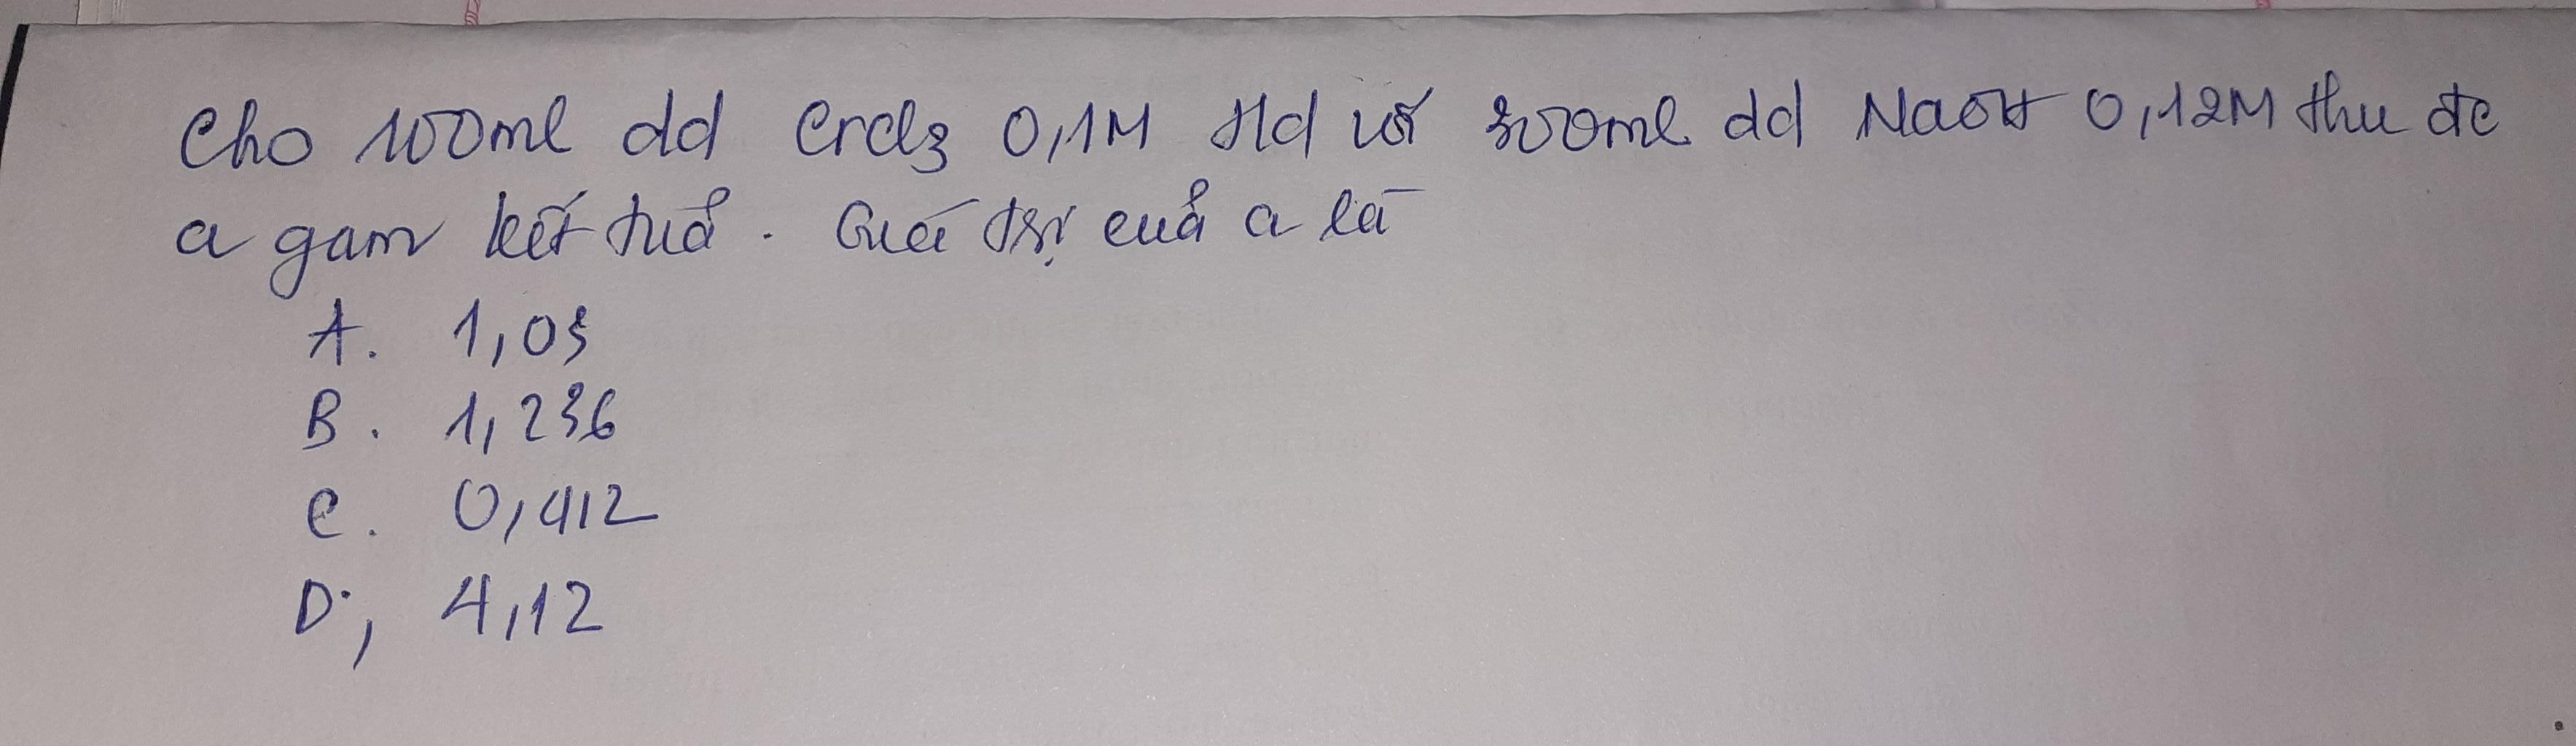 Cho 100ml dd CrCl3 0,1M td với 300ml dd NaOH 0,12M thu đc
a gam kết tủa. Giá trị của a là
A. 1,03
B. 1,236
C. 0,412
D, 4,12